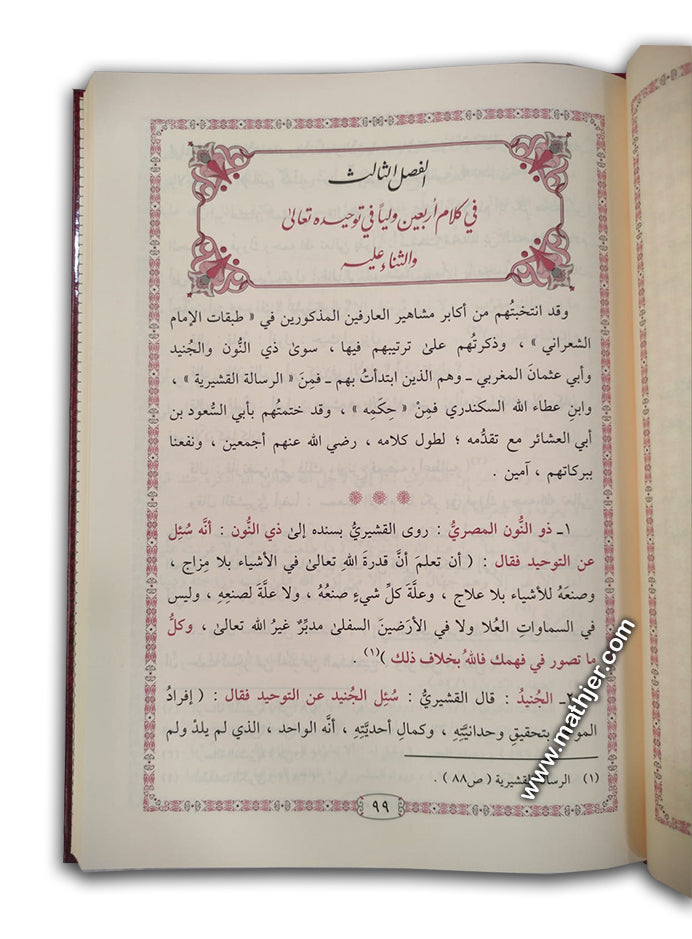 الفصل الثالث
في كلام أربعين ولياً في توحيده تعالى
والثناء عليه
وقد انتخبتُهم من أكابر مشاهير العارفين المذكورين في « طبقات الإمام
الشعراني » ، وذكرتُهم علىٰ ترتيبهم فيها ، سوىٰ ذي النُّون والجُنيد
وأبي عثمانَ المغربي ـ وهم الذين ابتدأتُ بهم ـ فمِنَ « الرسالة القشيرية » ،
وابنِ عطاء الله السكندري فمِنْ « حِكَمِه » ، وقد ختمتُهم بأبي السُّعود بن
أبي العشائر مع تقدُّمه ؛ لطول كلامه ، رضي الله عنهم أجمعين ، ونفعنا
ببركاتهم ، آمين .
١ـ ذو النُّون المصريُّ : روى القشيريُّ بسنده إلىٰ ذي النُّون : أنَّه سُئِل
عن التوحيد فقال : ( أن تعلمَ أنَّ قدرةَ اللهِ تعالىٰ في الأشياء بلا مِزاج ،
وصنعَهُ للأشياء بلا علاج ، وعلَّةَ كلِّ شيءٍ صنعُهُ ، ولا علَّةَ لصنعِهِ ، وليس
في السماواتِ العُلا ولا في الأرَضينَ السفلىٰ مدبِّرٌ غيرُ الله تعالىٰ ، وكلُّ
ما تصور في فهمك فاللهُ بخلاف ذلك )(١) .
٢ـ الجُنيدُ : قال القشيريُّ : سُئِل الجُنيد عن التوحيد فقال : ( إفرادُ
بتحقيقِ وحدانيَّتِهِ ، وكمالِ أحديَّتِهِ ، أنَّه الواحد ، الذي لم يلدْ ولم
(١) الرسالة القشيرية ( ص٨٨ ) .
٩٩
www.mathjer.com